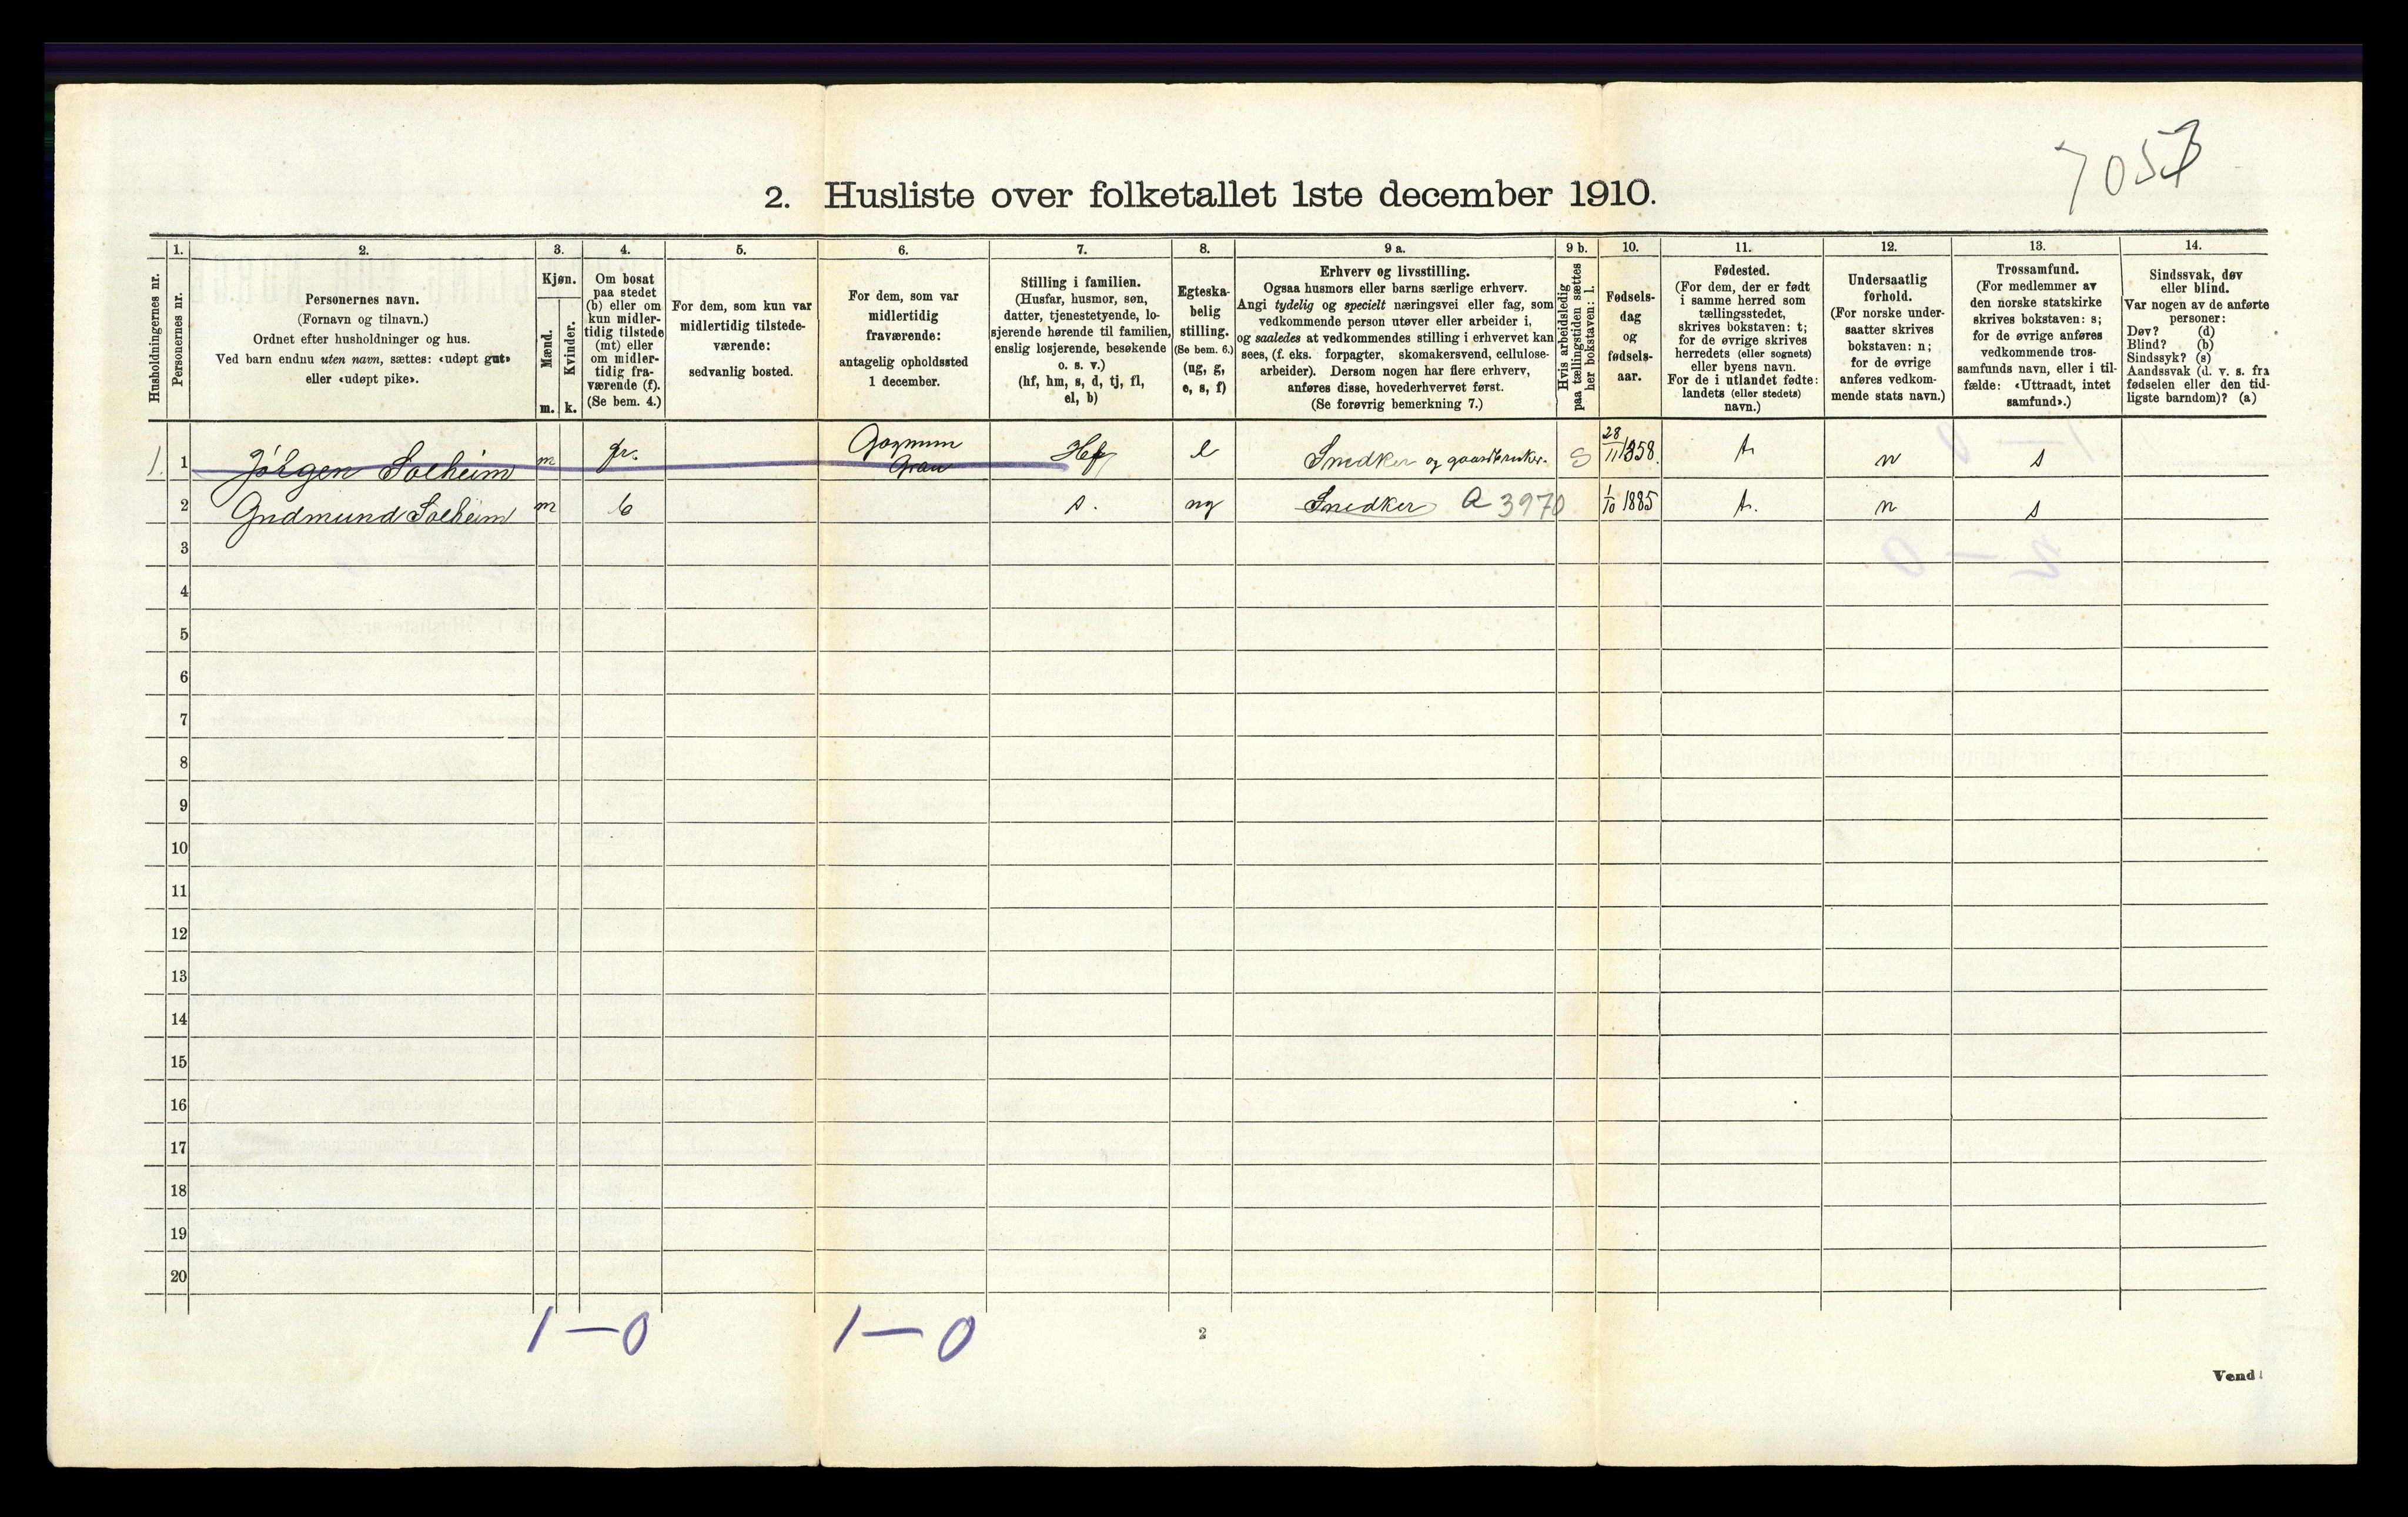 705
2. Husliste over folketallet 1ste december 1910.
Husholdningernes nr.
1.
Personernes nr.
2.
Personernes navn.
(Fornavn og tilnavn.)
Ordnet efter husholdninger og hus.
Ved barn endnu uten navn, sættes: «udøpt gut»
eller «udøpt pike».
3.
Kjøn.
Mænd.
Kvinder.
m. k.
4.
Om bosat
paa stedet
(b) eller om
kun midler-
tidig tilstede
(mt) eller
om midler-
tidig fra-
værende (f).
(Se bem. 4.)
5.
For dem, som kun var
midlertidig tilstede-
værende:
sedvanlig bosted.
6.
For dem, som var
midlertidig
fraværende:
antagelig opholdssted
1 december.
7.
Stilling i familien.
(Husfar, husmor, søn,
datter, tjenestetyende, lo-
sjerende hørende til familien,
enslig losjerende, besøkende
o. s. v.)
(hf, hm, s, d, tj, fl,
el, b)
8.
Egteska-
belig
stilling.
(Se bem. 6.)
(ug, g,
e, s, f)
9 a.
Erhverv og livsstilling.
Ogsaa husmors eller barns særlige erhverv.
Angi tydelig og specielt næringsvei eller fag, som
vedkommende person utøver eller arbeider i,
og saaledes at vedkommendes stilling i erhvervet kan
sees, (f. eks. forpagter, skomakersvend, cellulose-
arbeider). Dersom nogen har flere erhverv,
anføres disse, hovederhvervet først.
(Se forøvrig bemerkning 7.)
9 b.
Hvis arbeidsledig
paa tællingstiden sættes
her bokstaven: l.
10.
Fødsels-
dag
og
fødsels-
aar.
11.
Fødested.
(For dem, der er født
i samme herred som
tællingsstedet,
skrives bokstaven: t;
for de øvrige skrives
herredets (eller sognets)
eller byens navn.
For de i utlandet fødte:
landets (eller stedets)
navn.)
12.
Undersaatlig
forhold.
(For norske under-
saatter skrives
bokstaven: n;
for de øvrige
anføres vedkom-
mende stats navn.)
13.
Trossamfund.
(For medlemmer av
den norske statskirke
skrives bokstaven: s;
for de øvrige anføres
vedkommende tros-
samfunds navn, eller i til-
fælde: «Uttraadt, intet
samfund».)
14.
Sindssvak, døv
eller blind.
Var nogen av de anførte
personer:
Døv? (d)
Blind? (b)
Sindssyk? (s)
Aandssvak (d. v. s. fra
fødselen eller den tid-
ligste barndom)? (a)
1. 1 Jörgen Solheim m fr. Gran Hf e Snedker og gaardbruker. S 28/11 1858. t. n s
2 Gudmund Solheim m b s. ug Snedker a 3970 1/10 1885 t. n s
3
4
5
6
7
8
9
10
11
12
13
14
15
16
17
18
19
20
1 — 0 1 — 0
2
Vend!